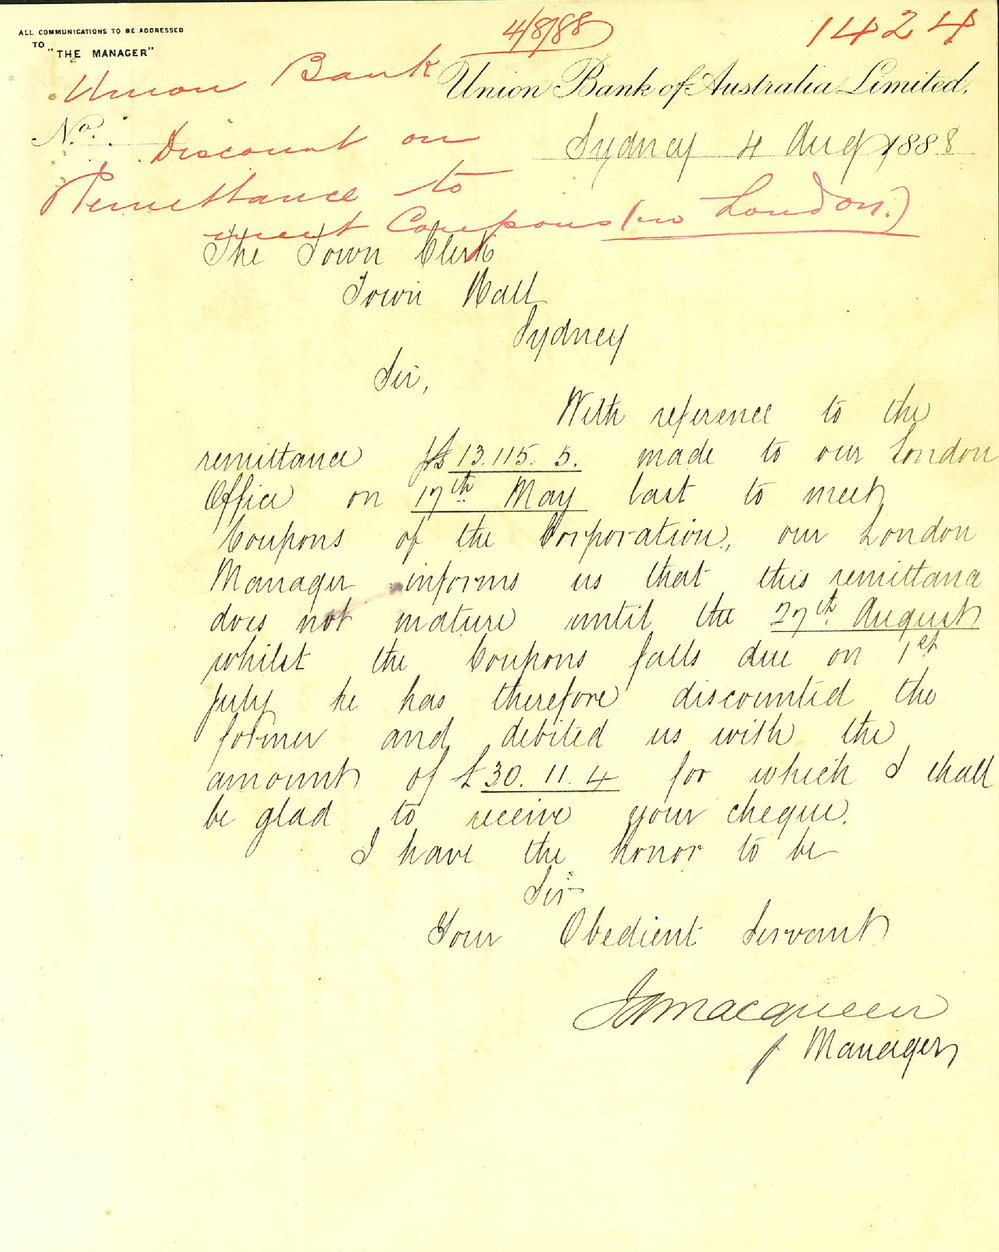 ALL COMMUNICATIONS TO BE ADDRESSED
TO "THE MANAGER"
4/8/88
1424
Union Bank
Union Bank of Australia Limited.
No.
Discount on
Remittance to
meet Coupons (in London.)
Sydney 4 Aug 1888
The Town Clerk
Town Hall
Sydney
Sir,
With reference to the
remittance £13.115.5. made to our London
Office on 17th May last to meet
Coupons of the Corporation, our London
Manager informs us that this remittance
does not mature until the 27th August
whilst the Coupons falls due on 1st
July he has therefore discounted the
former and debited us with the
amount of £30.11.4 for which I shall
be glad to receive your cheque.
I have the honor to be
Sir
Your Obedient Servant
Macqueen
Manager